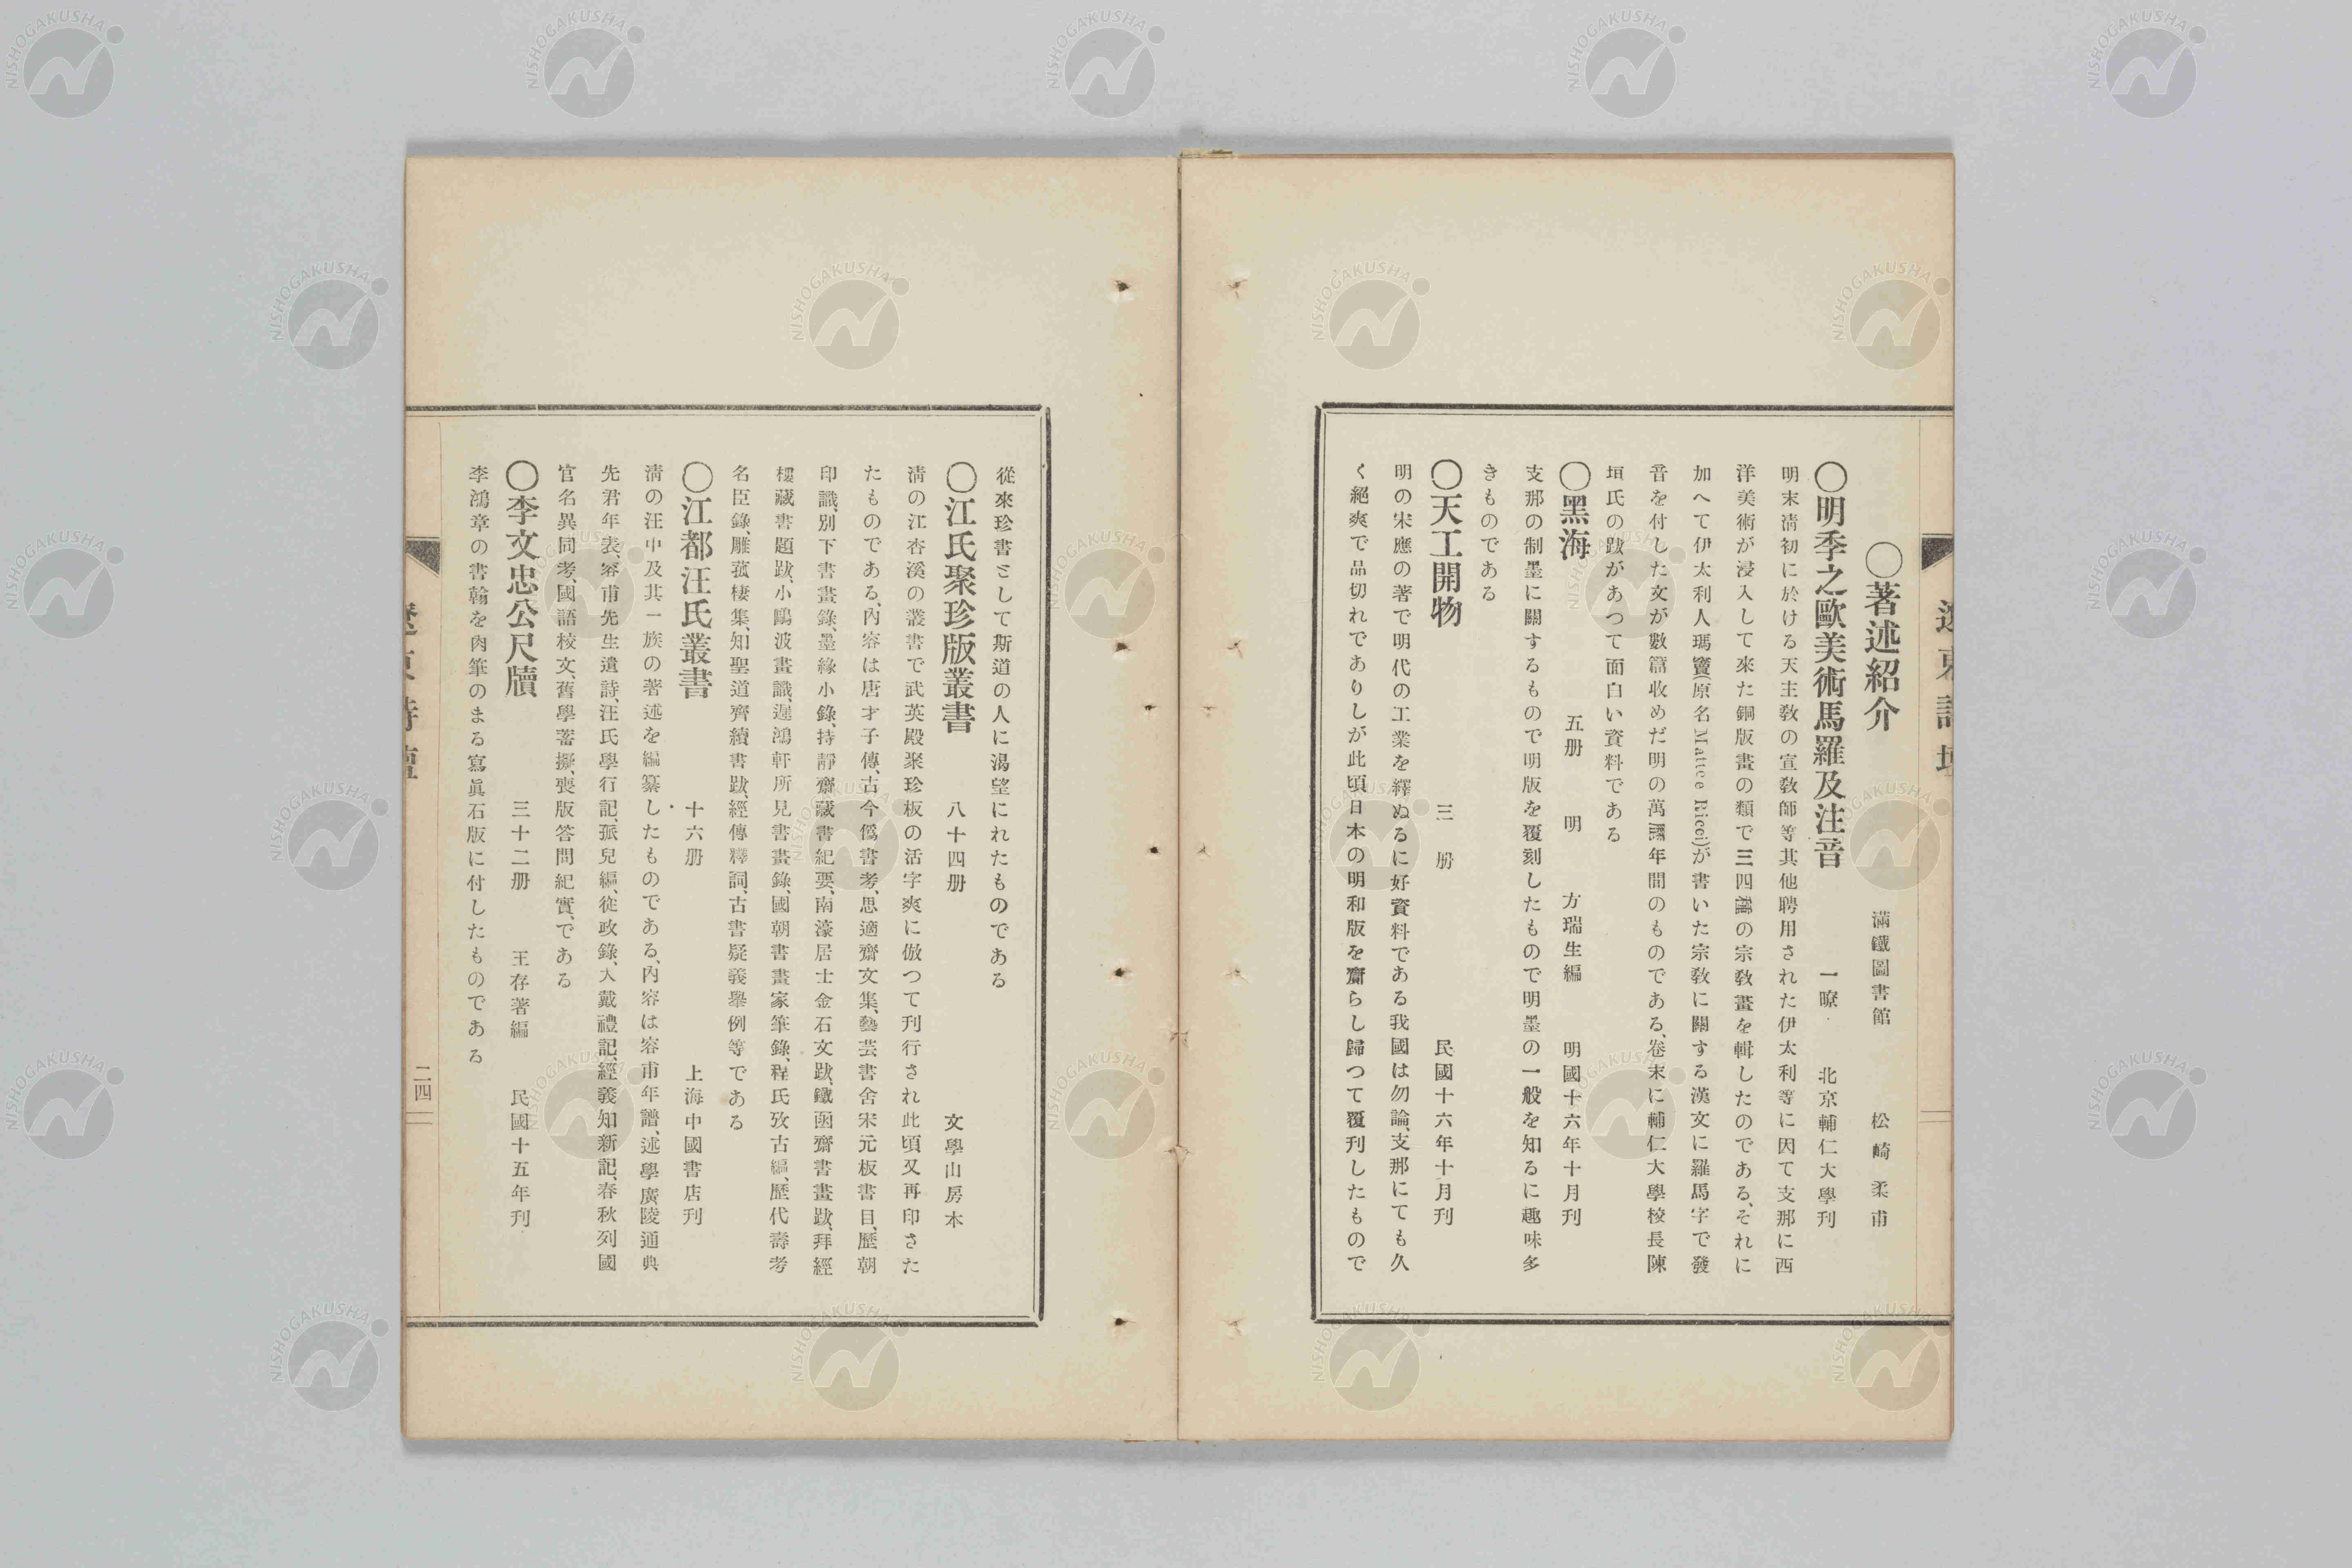 遼東詩壇
〇著述紹介 滿鐵圖書館 松崎柔甫
〇明季之歐美術馬羅及注音 一暸 北京輔仁大學刊
明末淸初に於ける天主敎の宣敎師等其他聘用された伊太利等に因て支那に西
洋美術が浸入して來た銅版畫の類で三四種の宗敎畫を輯したのである、それに
加へて伊太利人瑪竇(原名Mattee Ricci)が書いた宗敎に關する漢文に羅馬字で發
音を付した文が數篇收めだ明の萬曆年間のものである、卷末に輔仁大學校長陳
垣氏の跋があつて面白い資料である
〇黑海 五册 明 方瑞生編 明國十六年十月刊
支那の制墨に關するもので明版を覆刻したもので明墨の一般を知るに趣味多
きものである
〇天工開物 三册 民國十六年十月刊
明の宋應の著で明代の工業を繹ぬるに好資料である我國は勿論、支那にても久
く絕爽で品切れでありしが此頃日本の明和版を齎らし歸つて覆刊したもので
從來珍書として斯道の人に渴望にれたものである
〇江氏聚珍版叢書 八十四册 文學山房木
淸の江杏溪の叢書で武英殿聚珍板の活字爽に倣つて刊行され此頃又再印さた
たものである、內容は唐才子傳、古今僞書考、思適齋文集、藝芸書舍宋元板書目、歷朝
印識、別下書畫錄、墨緣小錄、持靜齋藏書紀要、南濠居士金石文跋、鐵函齋書畫跋、拜經
樓藏書題跋、小鷗波畫識、遲鴻軒所見書畫錄、國朝書畫家筆錄、程氏攷古編、歷代壽考
名臣錄、雕菰棲集、知聖道齊續書跋、經傳釋詞、古書疑義舉例等である
〇江都汪氏叢書 十六册 上海中國書店刊
淸の汪中及其一族の著述を編纂したものである、內容は容甫年譜、述學廣陵通典
先君年表、容甫先生遺詩、汪氏學行記、孤兒編、從政錄、大戴禮記、經義知新記、春秋列國
官名異同考、國語校文、舊學蓄擬、喪版答問紀實、である
〇李文忠公尺牘 三十二册 王存著編 民國十五年刊
李鴻章の書翰を肉筆のまる寫眞石版に付したものである
遼東詩壇
二四